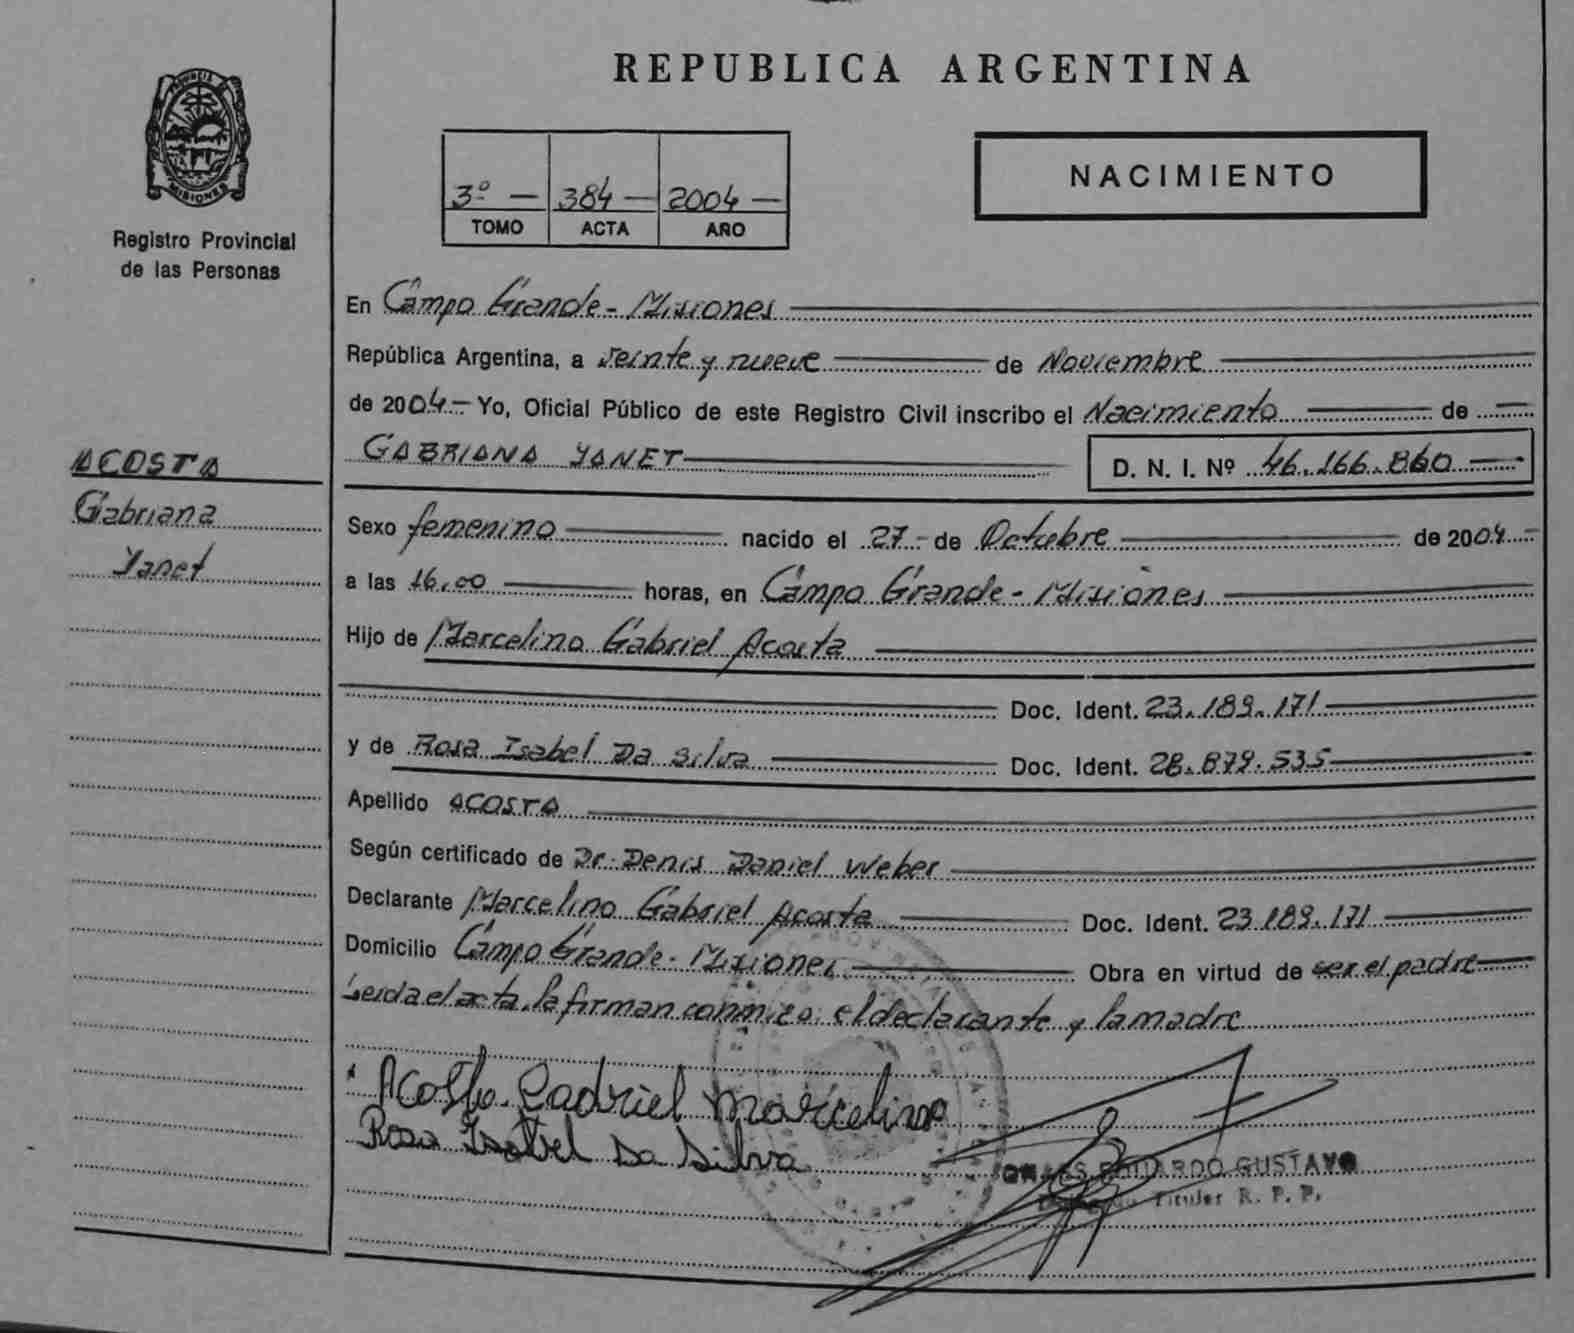 REPUBLICA ARGENTINA
NACIMIENTO
3º — 384 — 2004 —
TOMO ACTA AÑO
MISIONES
Registro Provincial
de las Personas
ACOSTA
Gabriana
Yanet
En Campo Grande - Misiones
República Argentina, a Veinte y nueve de Noviembre
de 2004 - Yo, Oficial Público de este Registro Civil inscribo el Nacimiento de
GABRIANA YANET D. N. I. Nº 46.166.860
Sexo femenino nacido el 27 - de Octubre de 2004
a las 16,00 horas, en Campo Grande - Misiones
Hijo de Marcelino Gabriel Acosta
Doc. Ident. 23.189.171
y de Rosa Isabel Da Silva Doc. Ident. 28.879.535
Apellido ACOSTA
Según certificado de Dr. Denis Daniel Weber
Declarante Marcelino Gabriel Acosta Doc. Ident. 23.189.171
Domicilio Campo Grande - Misiones Obra en virtud de ser el padre
Leida el acta, la firman conmigo: el declarante y la madre
Acosta Gabriel Marcelino
Rosa Isabel Da Silva
EDUARDO GUSTAVO
Titular R. P. P.